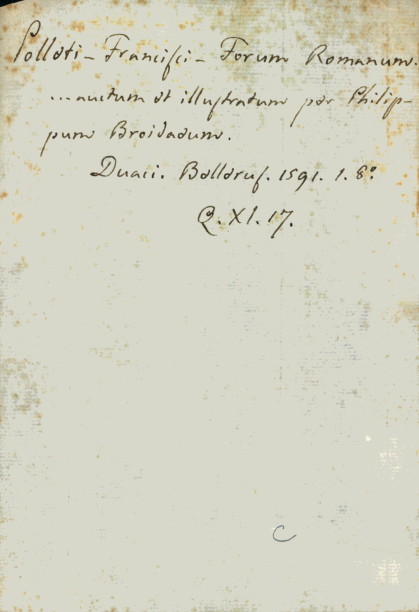 Polleti - Francisci - Forum Romanum.
...auctum et illustratum per Philip-
pum Broidaeum.
Duaci. Belleruf. 1591. 1. 8º
Q. XI. 17.
C